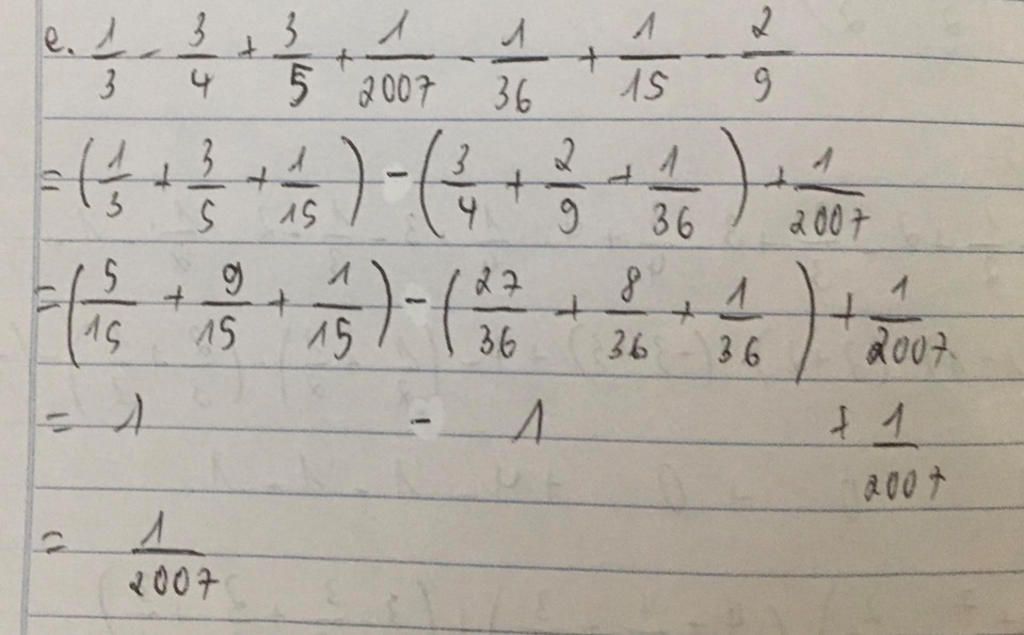 e. 1/3 - 3/4 + 3/5 + 1/2007 - 1/36 + 1/15 - 2/9
= (1/3 + 3/5 + 1/15) - (3/4 + 2/9 + 1/36) + 1/2007
= (5/15 + 9/15 + 1/15) - (27/36 + 8/36 + 1/36) + 1/2007
= 1 - 1 + 1/2007
= 1/2007